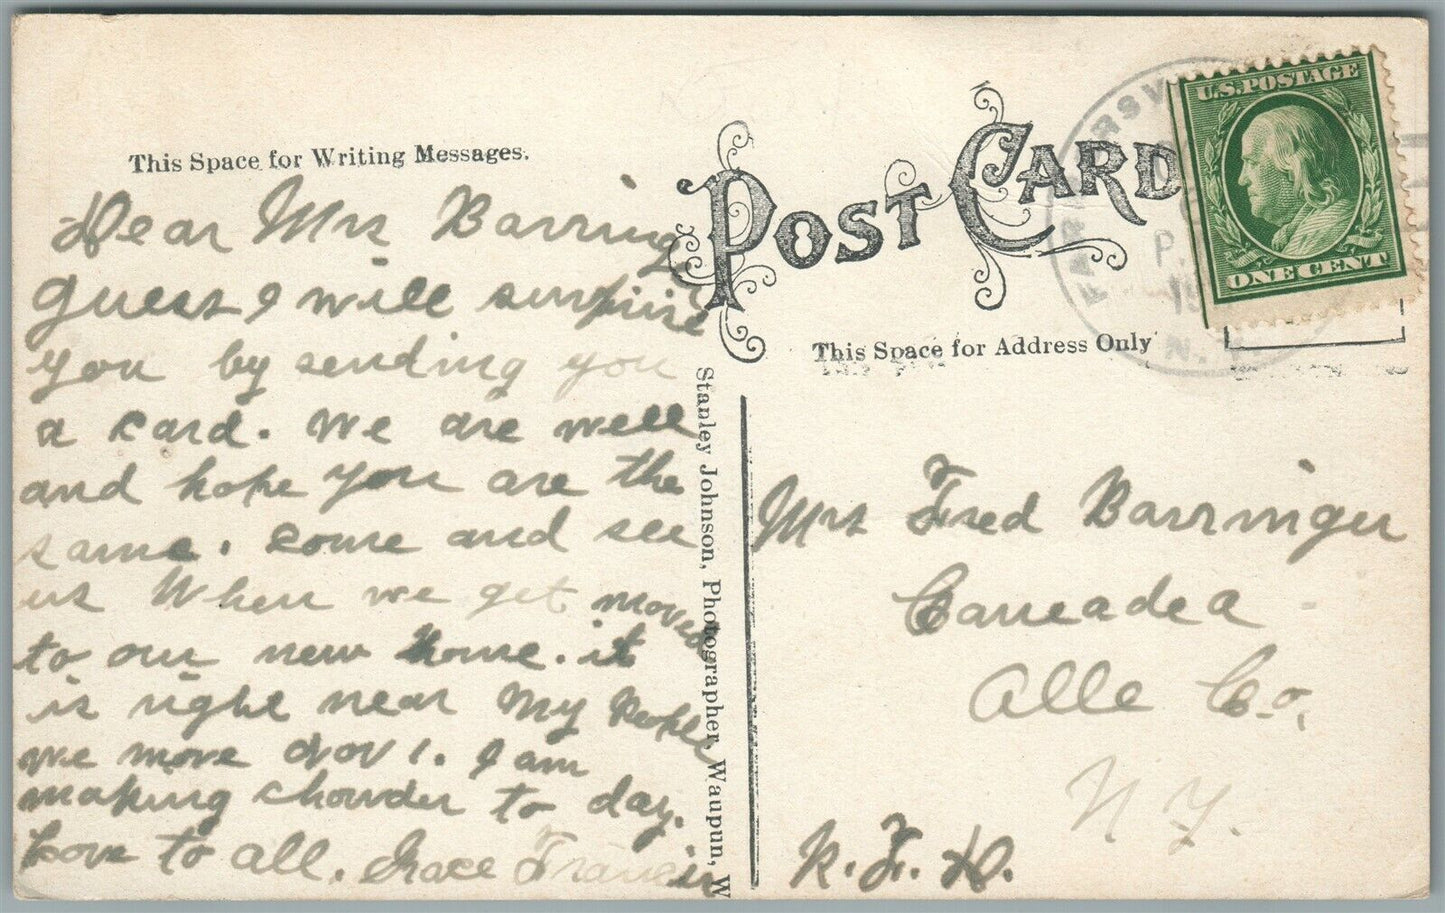 This Space for Writing Messages.
Dear Mrs Barringer
Guess I will surprise
you by sending you
a card. We are well
and hope you are the
same. come and see
us When we get moved
to our new home. it
is right near My People
we move Nov 1. I am
making chowder to day.
Love to all. Grace Francis
Stanley Johnson, Photographer, Waupun, W
POST CARD
This Space for Address Only
FARMERSV
P.
19
N. Y.
U.S. POSTAGE
ONE CENT
Mrs Fred Barringer
Caneadea
Alle Co.
N Y.
R. F. D.